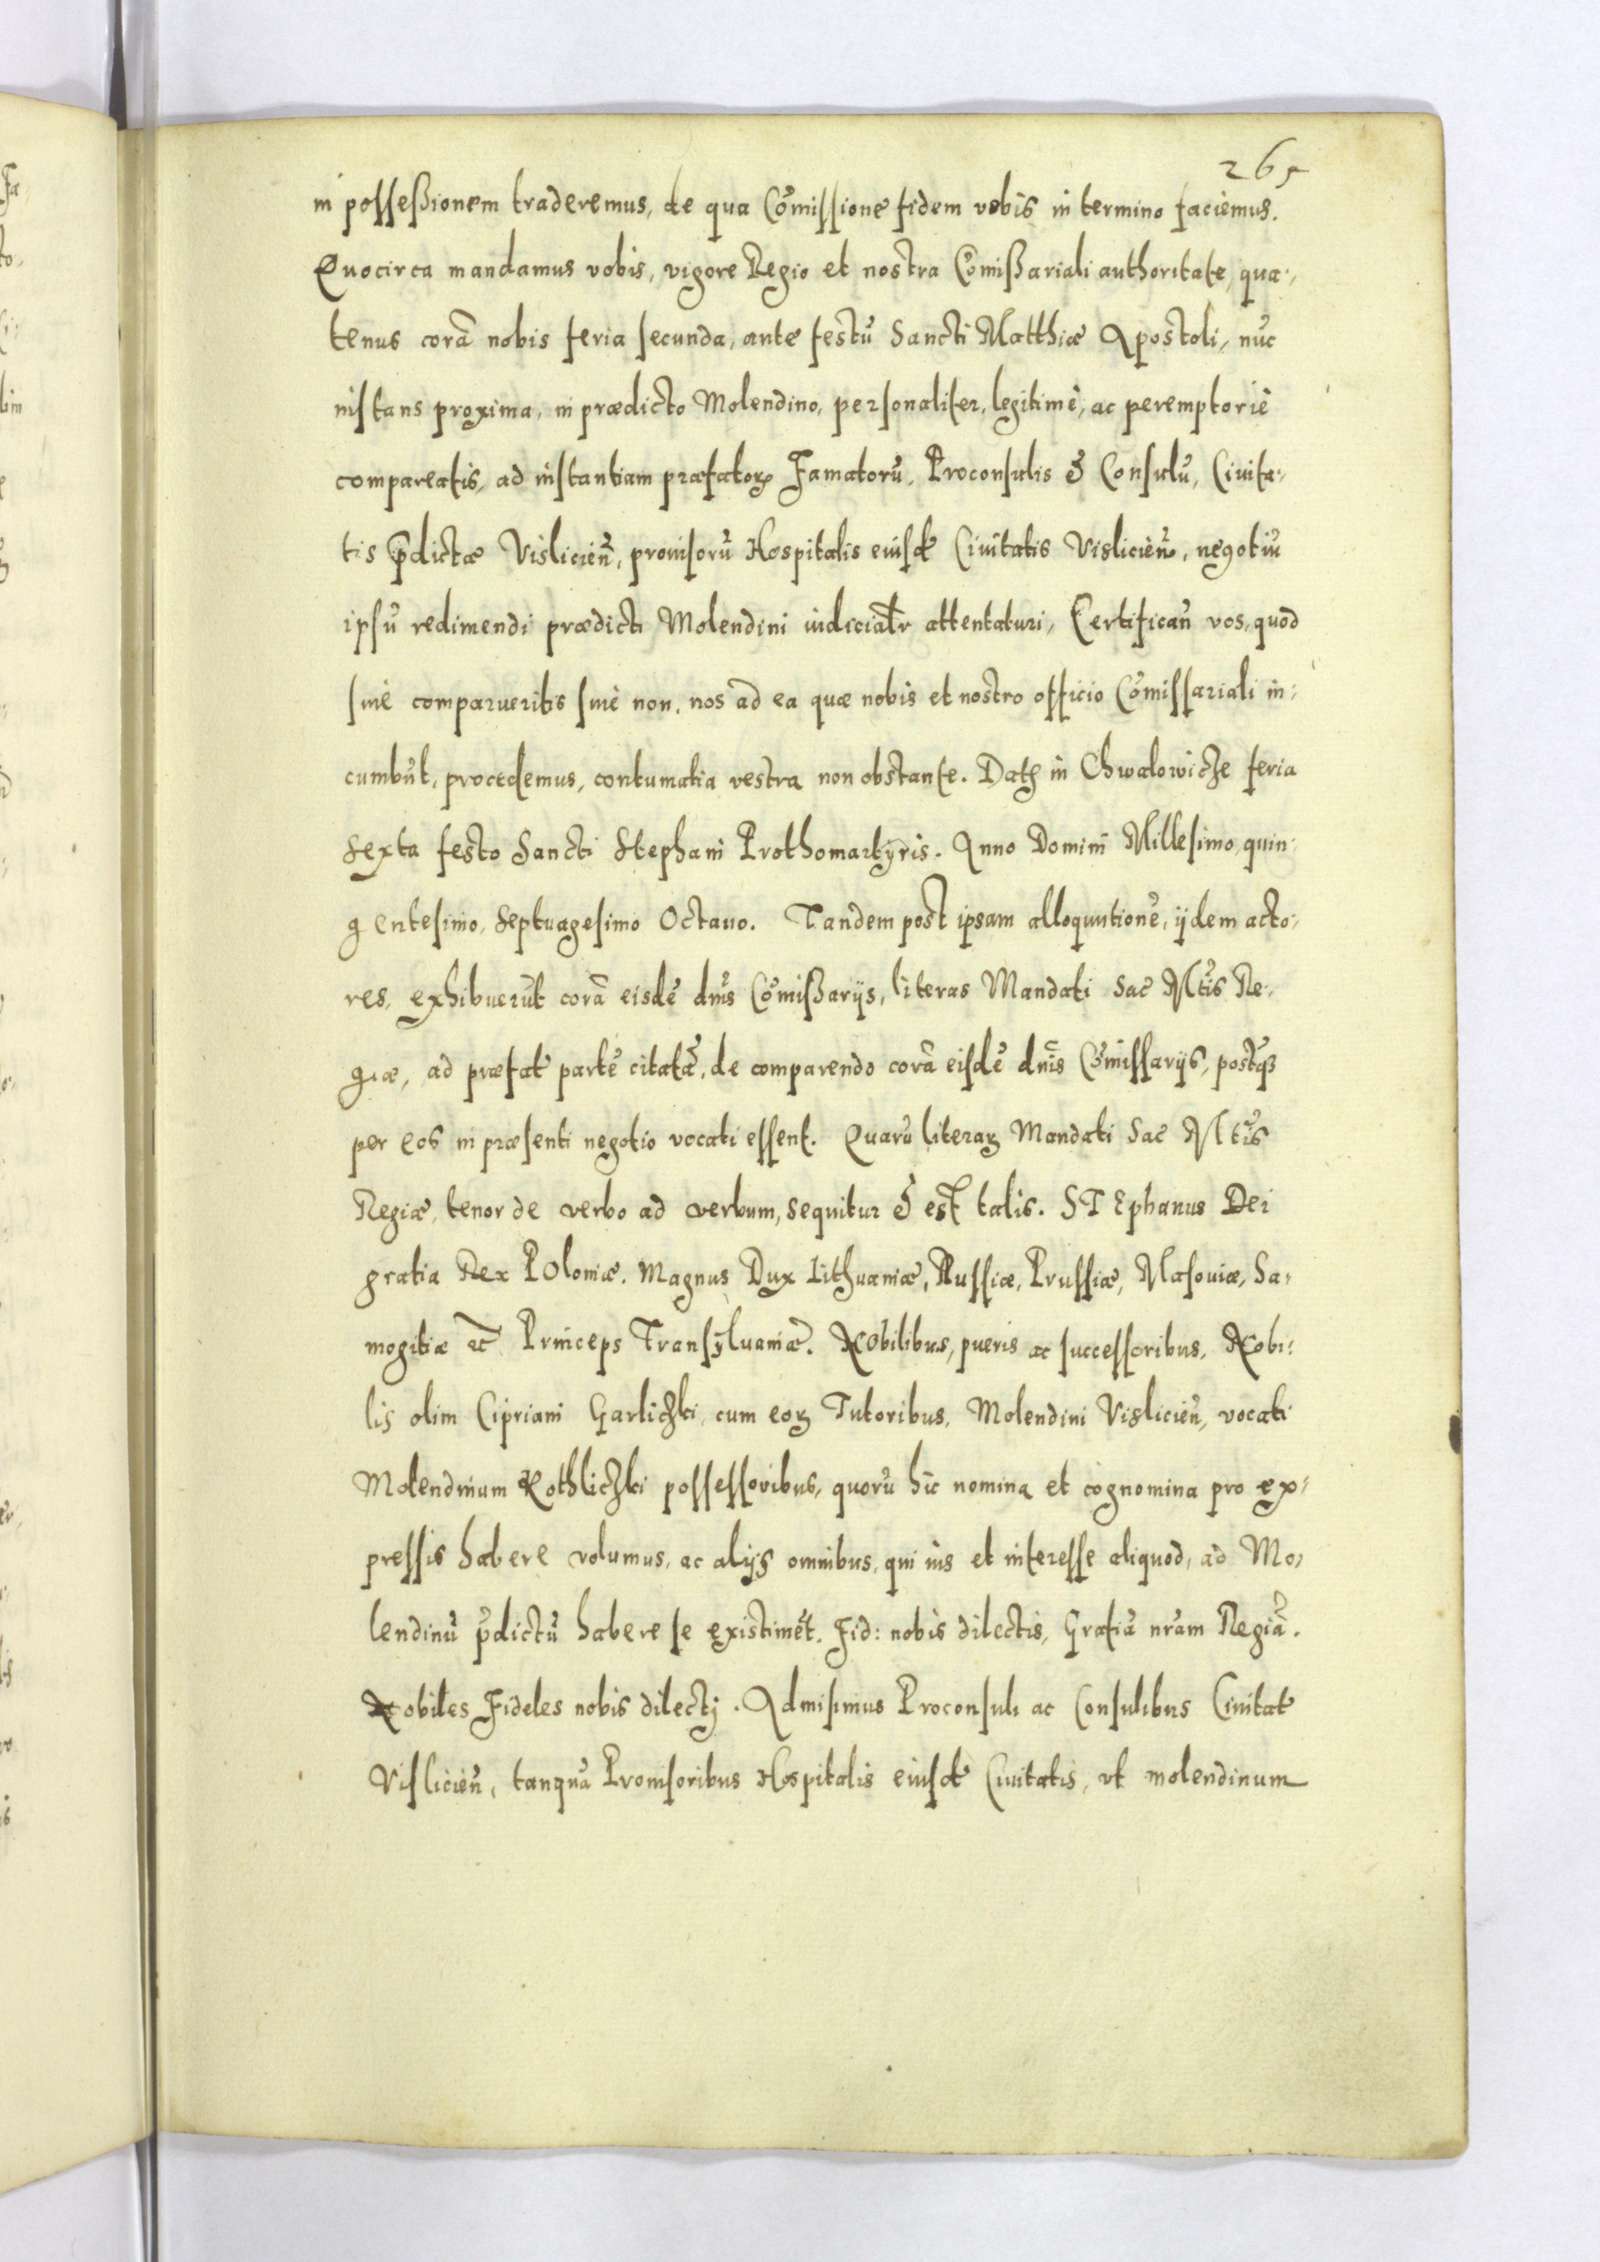 265
in possessionem traderemus, de qua Cõmissione fidem vobis in termino faciemus.
Quocirca mandamus vobis, vigore Regio et nostra Cõmissariali authoritate, qua-
tenus corã nobis feria secunda, ante festũ Sancti Matthiæ Apostoli, nũc
instans proxima, in prædicto Molendino, personaliter, legitimè, ac peremptoriè
compareatis, ad instantiam præfatorꝝ Famatorũ, Proconsulis & Consulũ, Ciuita-
tis p̃dictæ Vislicień, prouisorũ Hospitalis eiusd Ciuitatis Vislicień, negotiũ
ipsũ redimendi prædicti Molendini iudicialr attentaturi, Certifican̄ vos, quod
siuè comparueritis siuè non, nos ad ea quæ nobis et nostro officio Cõmissariali in-
cumbũt, procedemus, contumatia vestra non obstante. Datꝝ in Chwalowicze feria
Sexta festo Sancti Stephani Prothomartyris. Anno Domini Millesimo, quin-
gentesimo, Septuagesimo Octauo. Tandem post ipsam alloquutionẽ, ijdem acto-
res, exhibuerũt corã eisdẽ dnis Cõmissarijs, literas Mandati Sac Mtis Re-
giæ, ad præfat partẽ citatã, de comparendo corã eisdẽ dnis Cõmissarijs, postqꝫ
per eos in præsenti negotio vocati essent. Quarũ literaꝝ Mandati Sac Mtis
Regiæ, tenor de verbo ad verbum, sequitur & est talis. STEphanus Dei
gratia Rex POloniæ. Magnus Dux Lithuaniæ, Russiæ, Prussiæ, Masouiæ, Sa-
mogitiæ ac̃ Princeps Transyluaniæ. NObilibus, pueris ac successoribus, Nobi-
lis olim Cipriani Garliczki, cum eoꝝ Tutoribus, Molendini Vislicień, vocati
Molendinum Kothliczki possessoribus, quorũ hic nomina et cognomina pro ex-
pressis habere volumus, ac alijs omnibus, qui ius et interesse aliquod, ad Mo-
lendinũ p̃dictũ habere se existimẽt. Fid: nobis dilectis, Gratiã nrãm Regiã.
Nobiles Fideles nobis dilecti. Admisimus Proconsuli ac Consulibus Ciuitat
Vislicień, tanquã Prouisoribus Hospitalis eiusd Ciuitatis, vt molendinum